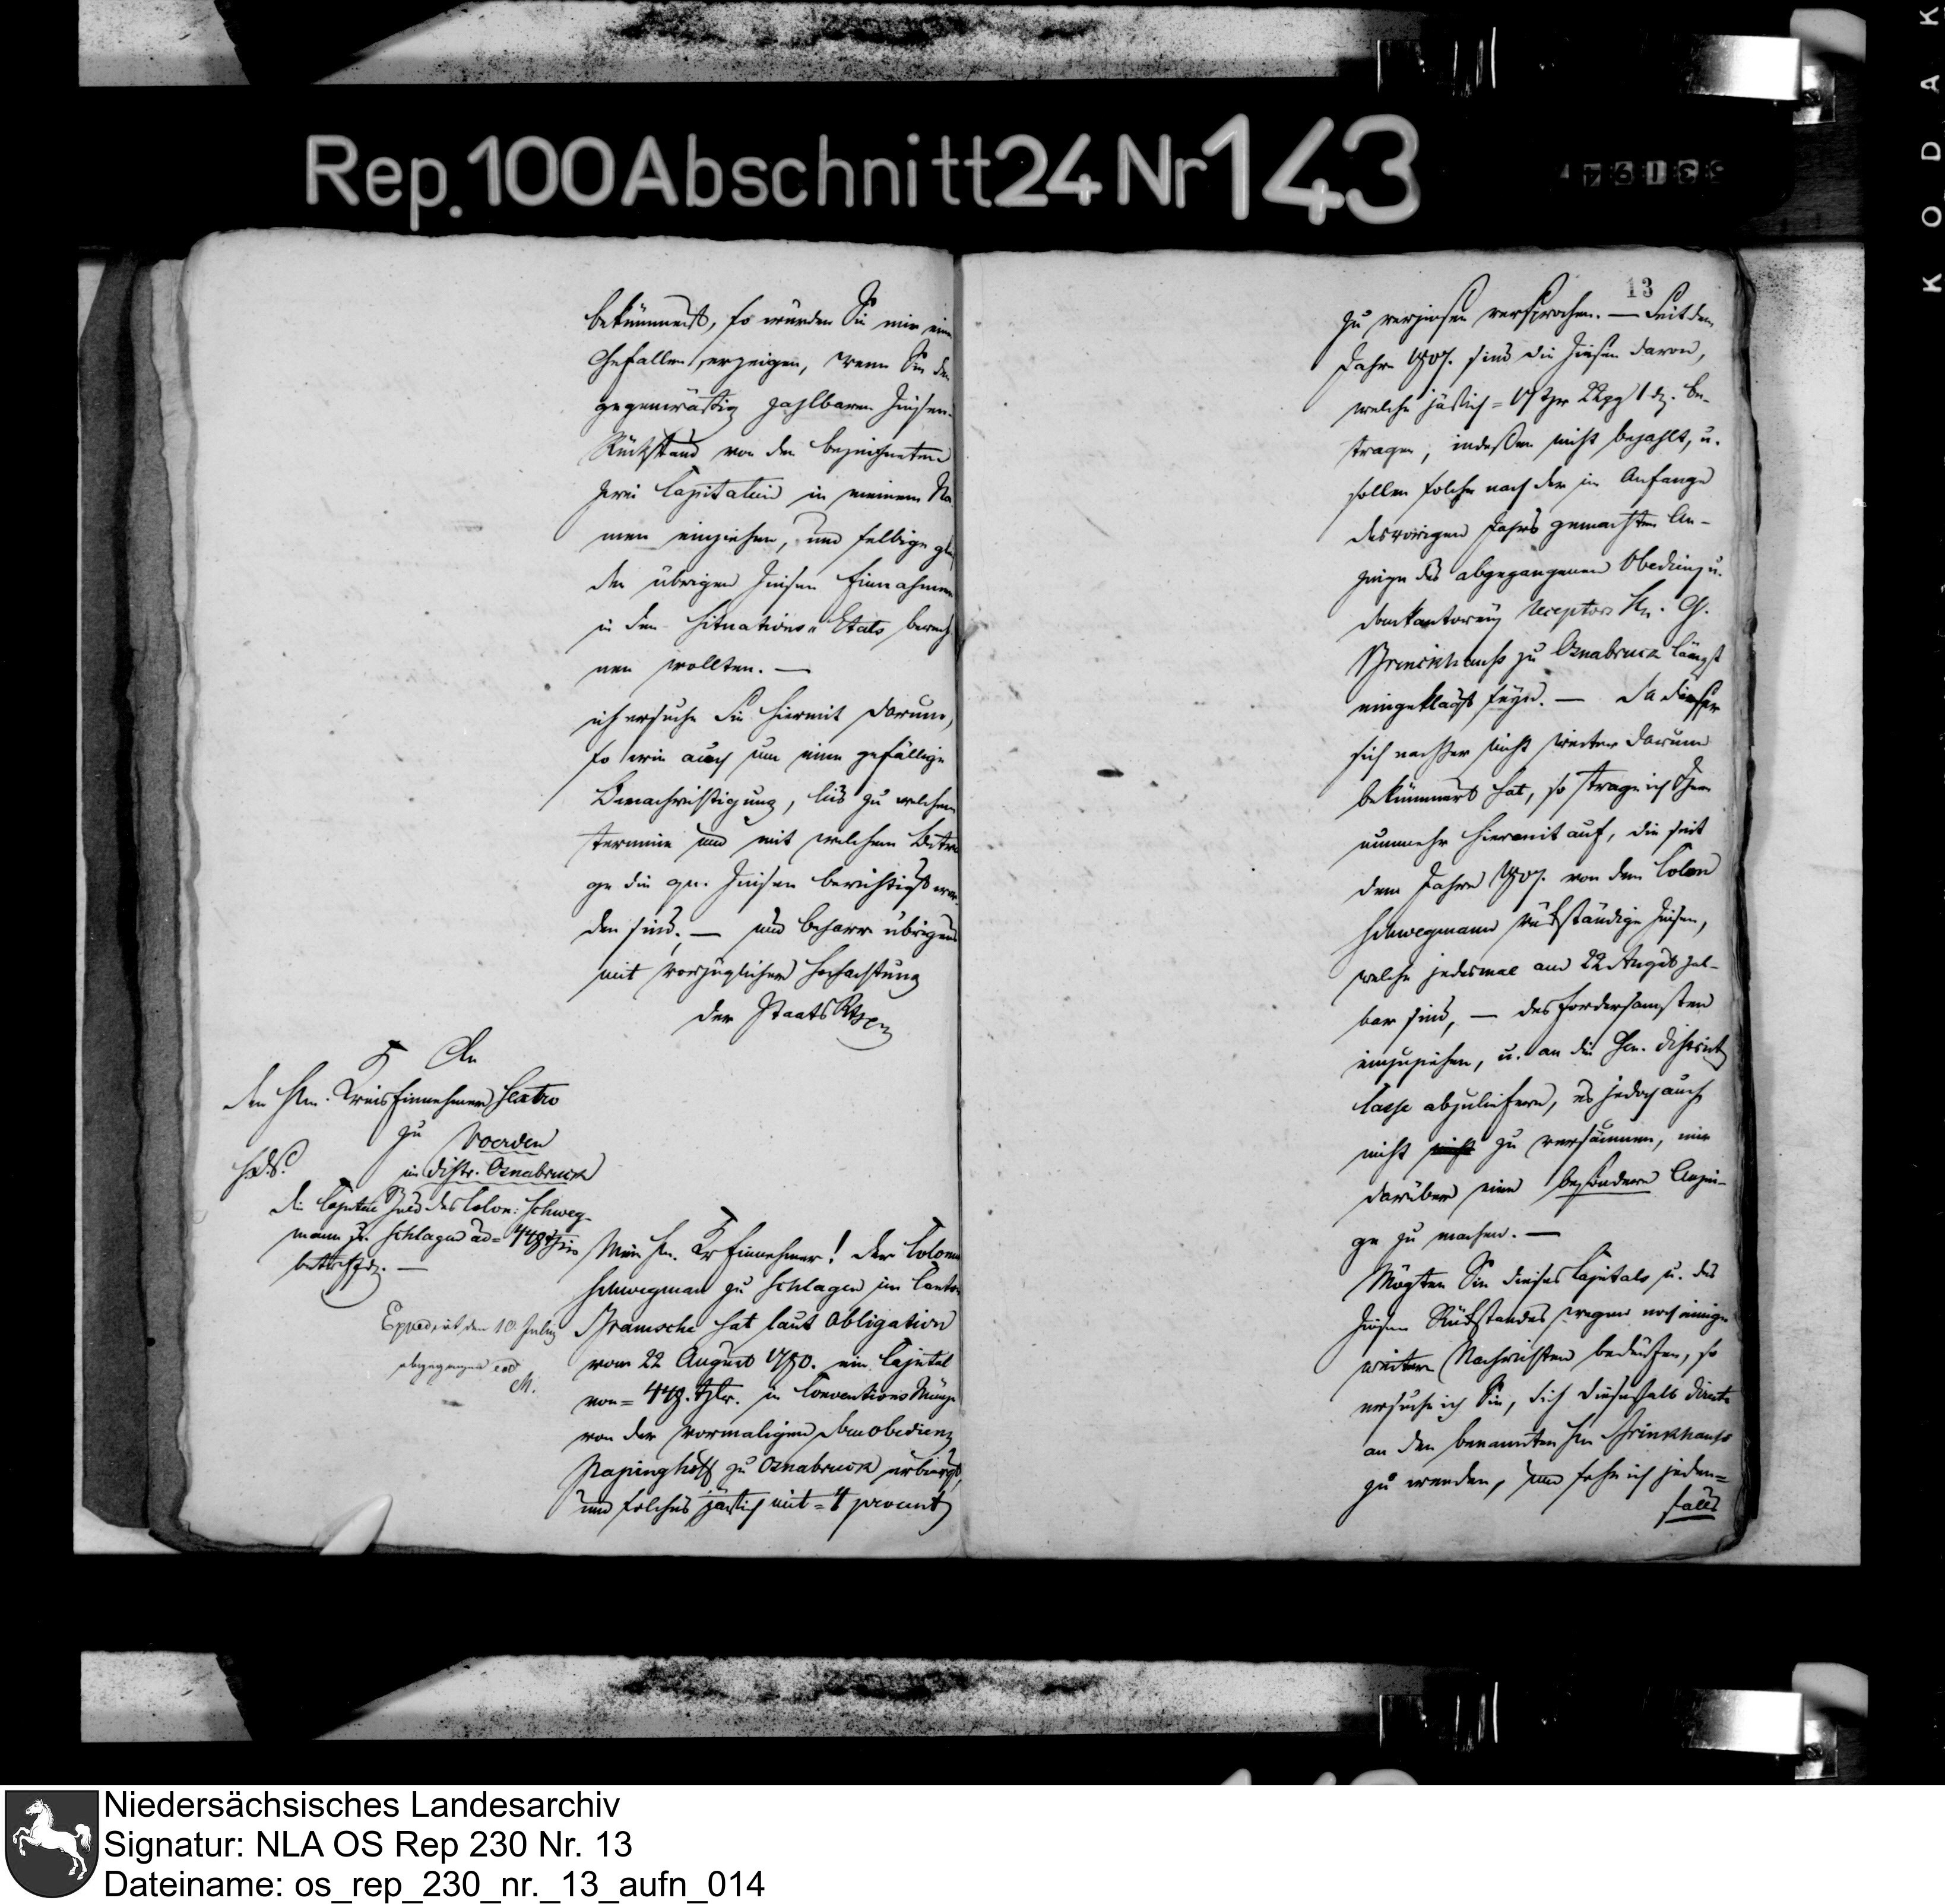 KODAK
Rep. 100 Abschnitt 24 Nr 143
bekümmert, so würden Sie mir einen
Gefallen erzeigen, wenn Sie den
gegenwärtig zahlbaren Zinsen-
Rückstand von den bezeichneten
zwei Capitalien in meinem Na
men einziehen, und selbige gleich
den übrigen Zinsen Einnahmen
in den Situations-Etats berech
nen wollten. —
ich ersuche Sie hiermit darum,
so wie auch um eine gefällige
Benachrichtigung, bis zu welchem
termine und mit welchem Betra
ge die qu. Zinsen berichtigt wor-
den sind. — und beharre übrigens
mit vorzüglicher Hochachtung
der Staats
An
den Hrn. Kreis Einnehmer
zu Voerden
im Distr. Osnabruck
die Capital Schuld des Colon: Schweg
mann zu Schlagen ad = 448
betreffend. —
Exped. ut den 10. July
abgegangen eod
M.
Mein Hr. Kr Einnehmer! der Colonus
Schwegman zu Schlagen im Canton
Bramsche hat laut Obligation
vom 22 August 1780. ein Capital
von = 448. Thlr. in Conventions Münze
von der vormaligen Dom obedienz
Papinghoff zu Osnabruck
und solches jährlich mit = 4 procent
13
zu verzinsen versprochen. — Seit dem
Jahre 1807. sind die Zinsen davon,
welche jährlich = 17 Thlr 22 gg 1 d. be-
tragen, indeßen nicht bezahlt, u.
sollen solche nach der im Anfange
des vorigen Jahrs gemachten An-
zeige des abgegangenen Obedienz u.
Domkantorey receptors Hr. G.
Brinckhauß zu Osnabruck längst
eingeklagt seyn. — Da dieser
sich nachher nicht weiter darum
bekümmert hat, so trage ich Ihnen
nunmehr hiermit auf, die seit
dem Jahre 1807. von dem Colon
Schwegmann rückständige Zinsen,
welche jedesmal am 22 August zal-
bar sind, — des fordersamsten
einzuziehen, u. an die Hr. District
Casse abzuliefern, es jedoch auch
nicht zu versäumen, mir
darüber eine besondere Anzei-
ge zu machen. —
Mögten Sie dieses Capitals u. des
Zinsen Rückstandes wegen noch einige
weitere Nachrichten bedürfen, so
ersuche ich Sie, sich diesfalls directe
an den benannten Hrn Brinkhauß
zu wenden, und sehe ich jeden=
falls
Niedersächsisches Landesarchiv
Signatur: NLA OS Rep 230 Nr. 13
Dateiname: os_rep_230_nr._13_aufn_014